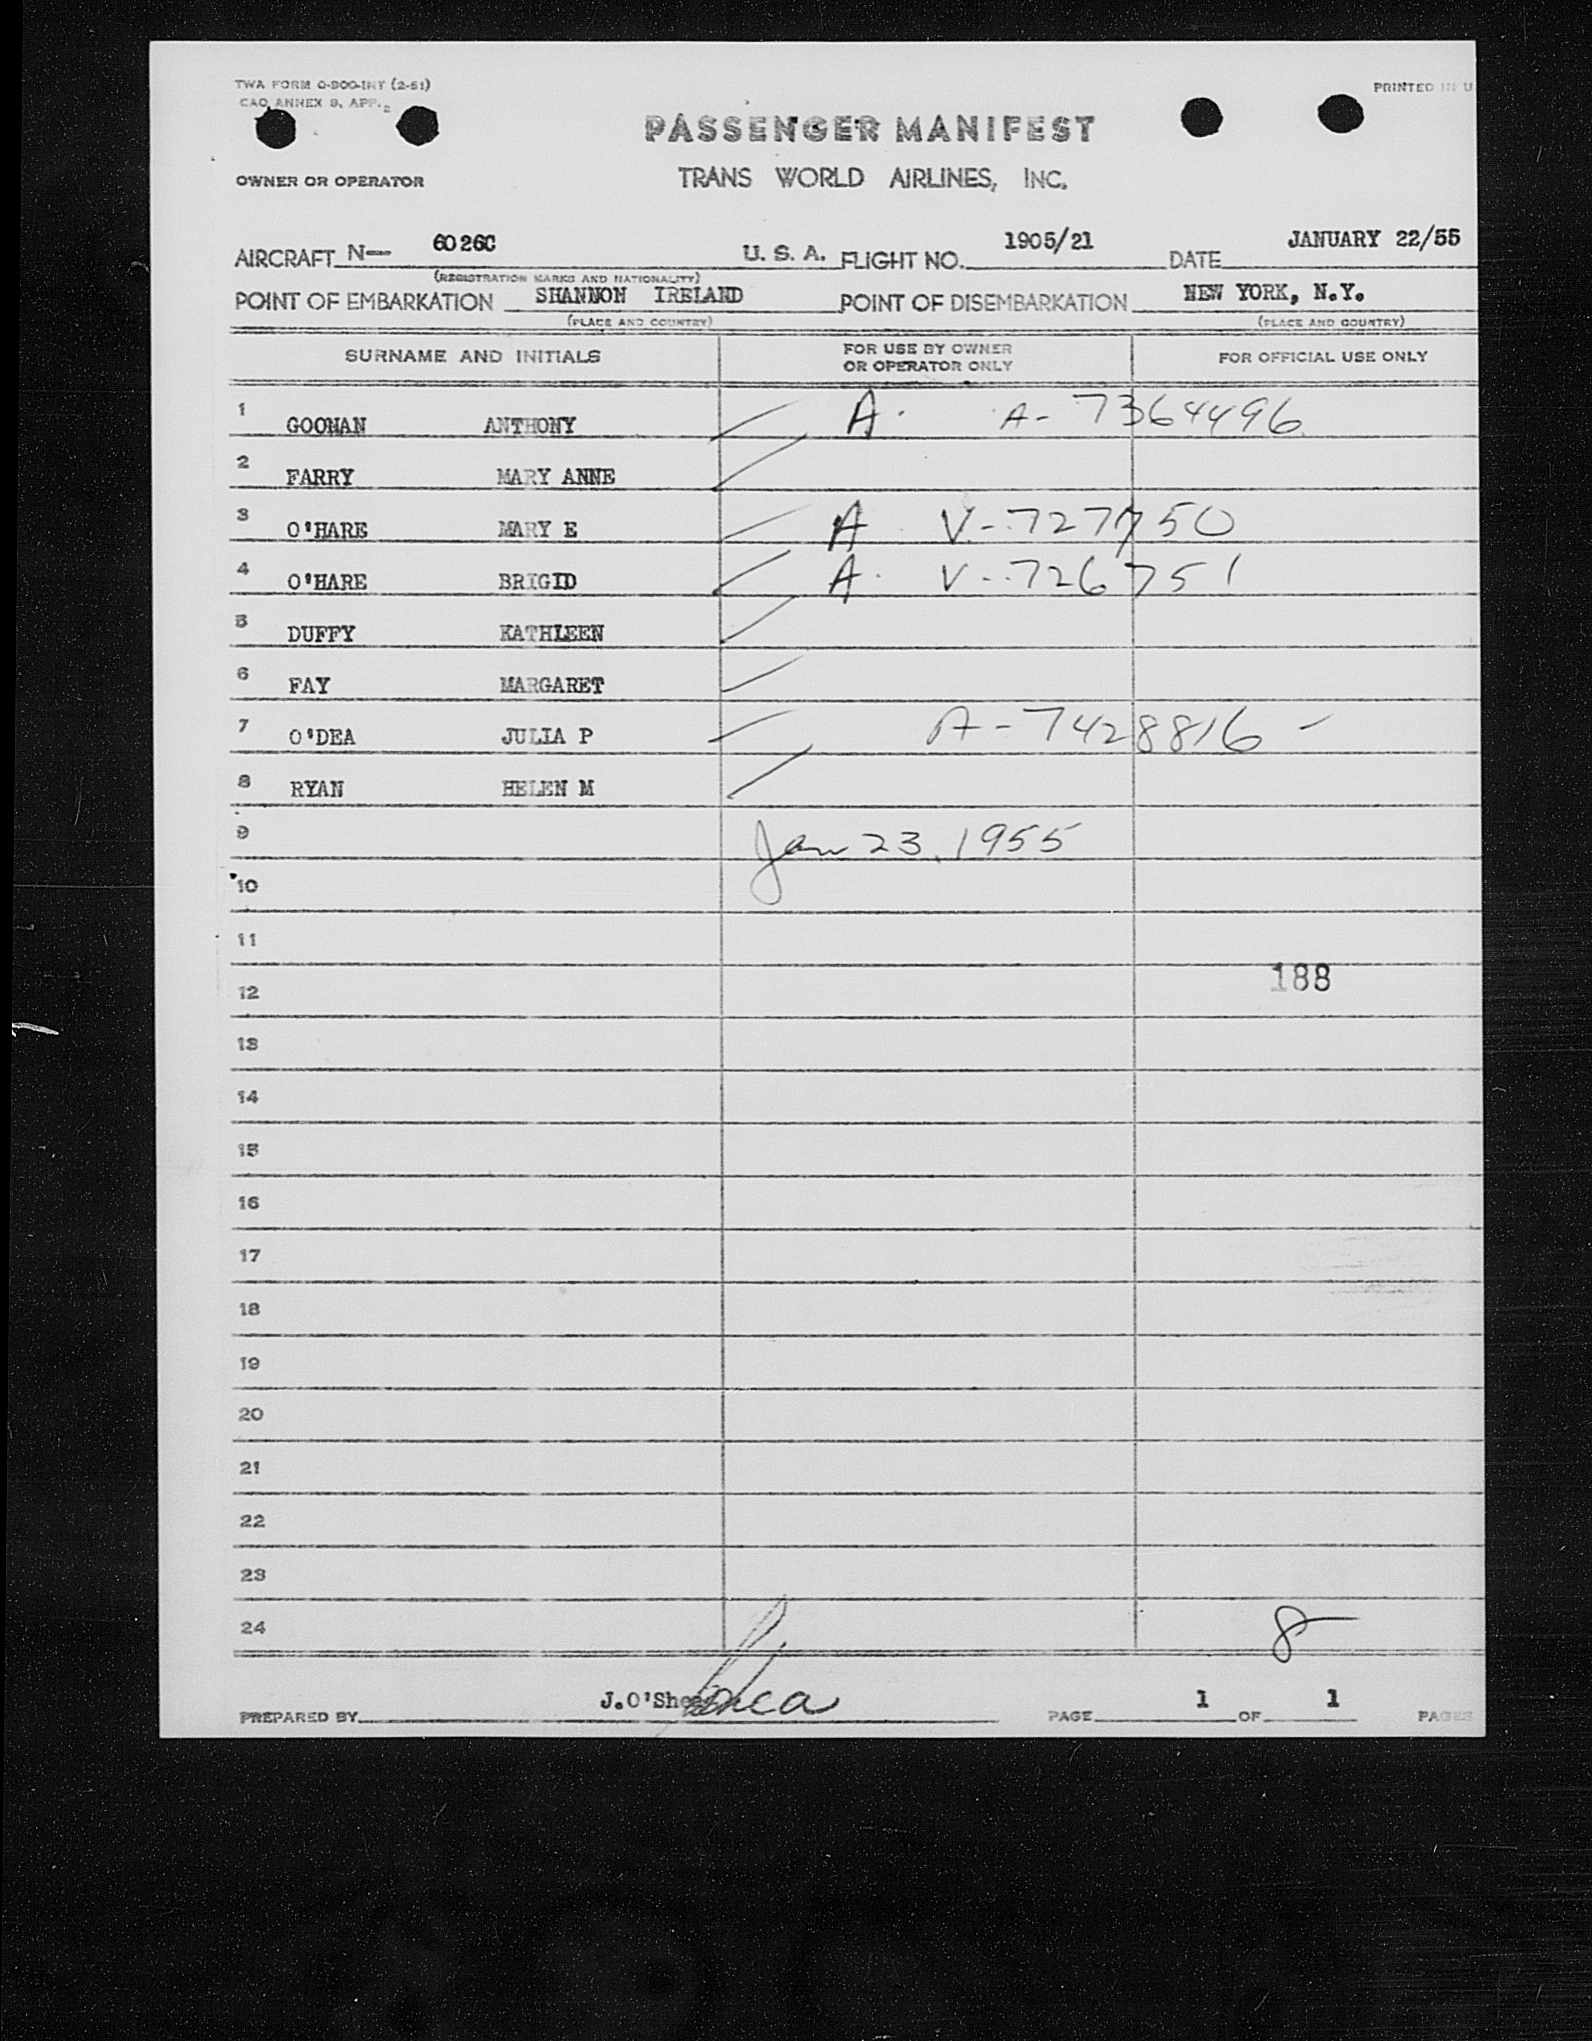 TWA FORM O-900-INT (2-51)
CAO ANNEX 9, APP. 2
PRINTED IN U
PASSENGER MANIFEST
OWNER OR OPERATOR
TRANS WORLD AIRLINES, INC.
AIRCRAFT N— 6026C U. S. A. FLIGHT NO. 1905/21 DATE JANUARY 22/55
(REGISTRATION MARKS AND NATIONALITY)
POINT OF EMBARKATION SHANNON IRELAND POINT OF DISEMBARKATION NEW YORK, N.Y.
(PLACE AND COUNTRY) (PLACE AND COUNTRY)
SURNAME AND INITIALS FOR USE BY OWNER OR OPERATOR ONLY FOR OFFICIAL USE ONLY
1 GOONAN ANTHONY A. A- 7364496
2 FARRY MARY ANNE
3 O'HARE MARY E A V-727750
4 O'HARE BRIGID A. V-726751
5 DUFFY KATHLEEN
6 FAY MARGARET
7 O'DEA JULIA P A-7428816 -
8 RYAN HELEN M
9 Jan 23, 1955
10
11
188
12
13
14
15
16
17
18
19
20
21
22
23
24 8
PREPARED BY J.O'Shea PAGE 1 OF 1 PAGES